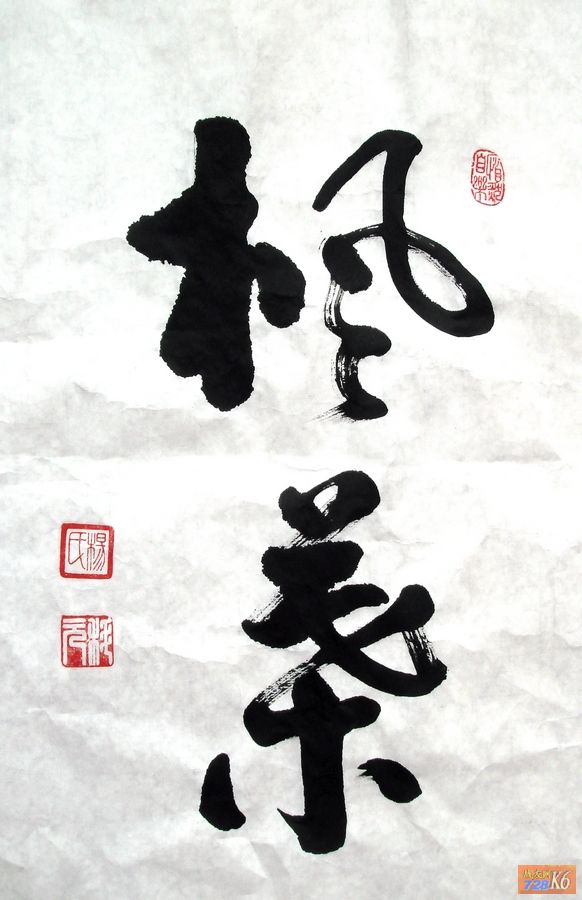 楓葉
楊氏
728K6